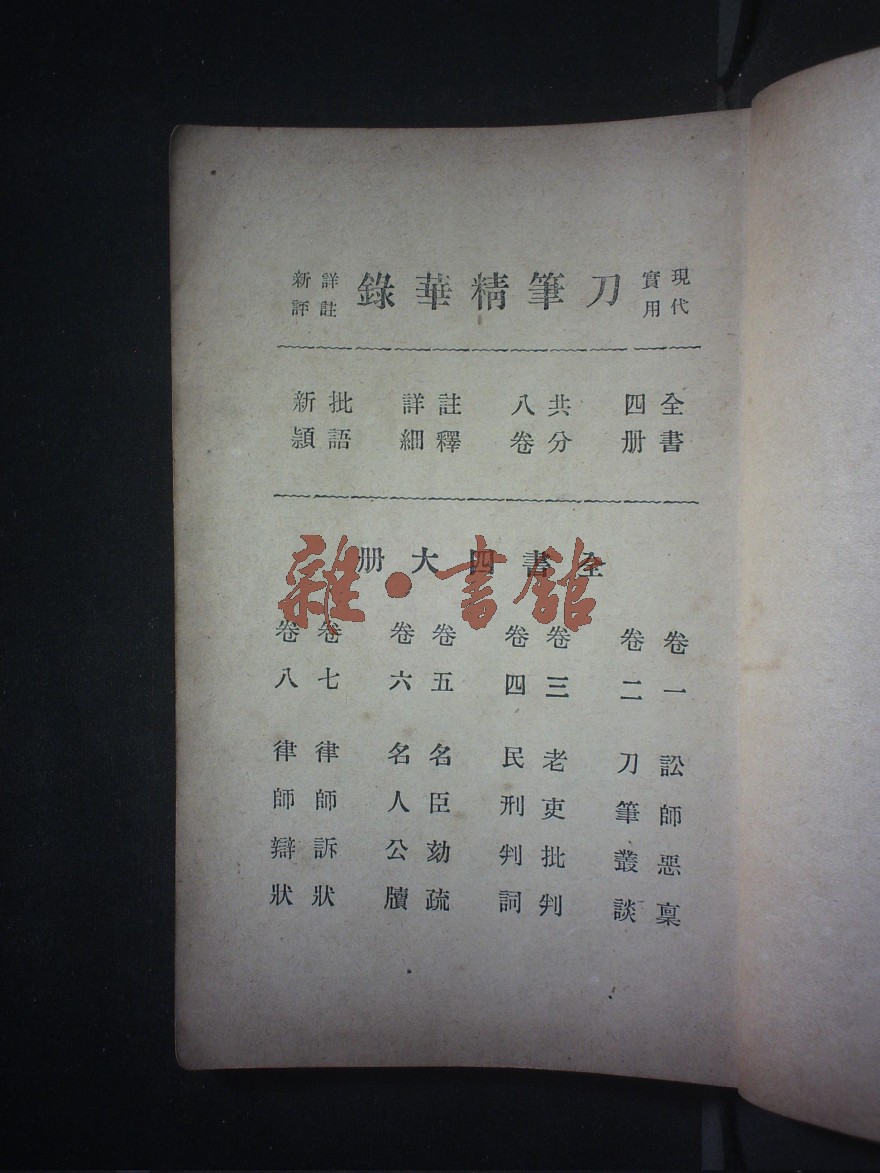 現代實用 刀筆精華錄 詳註新評
全書四册 共分八卷 註釋詳細 批語新穎
全書四大册
卷一 訟師惡稟
卷二 刀筆叢談
卷三 老吏批判
卷四 民刑判詞
卷五 名臣劾疏
卷六 名人公牘
卷七 律師訴狀
卷八 律師辯狀
雜·書館